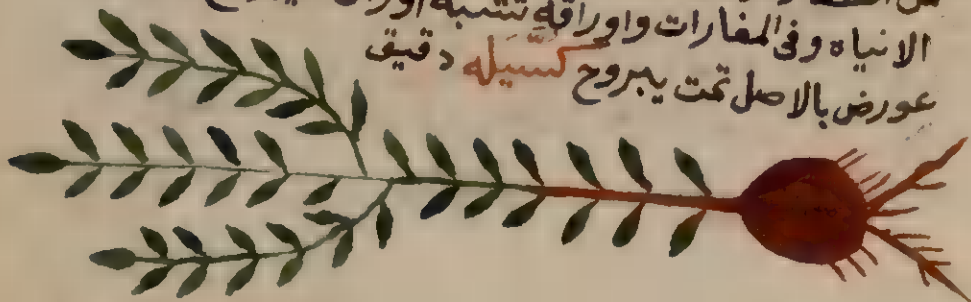 الانياه وفى المغارات واوراقه تشبه اوراق
عورض بالاصل تمت يبروح كسيله دقيق